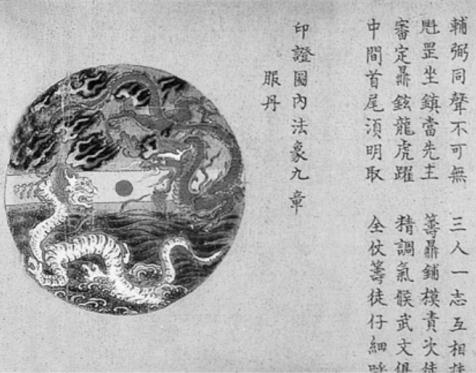 輔弼同聲不可無 三人一志互相
魁罡坐鎮當先主 籌鼎鋪模責次
審定鼎鉉龍虎躍 精調氣候武文俱
中間首尾須明取 全仗籌徒仔細
印證圖內法象九章
服丹